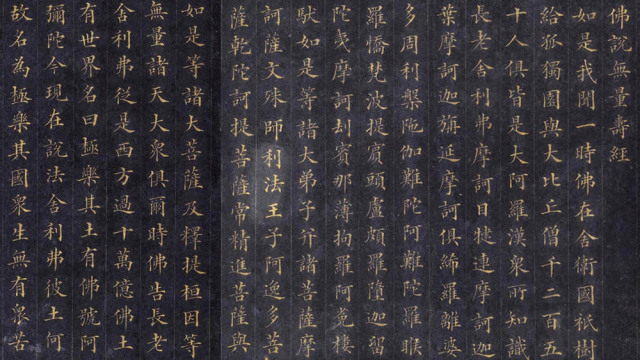 佛說無量壽經
如是我聞一時佛在舍衛國祇樹
給孤獨園與大比丘僧千二百五
十人俱皆是大阿羅漢衆所知識
長老舍利弗摩訶目揵連摩訶迦
葉摩訶迦旃延摩訶俱絺羅離婆
多周利槃陁伽難陀阿難陀羅睺
羅憍梵波提賓頭盧頗羅墮迦留
陀夷摩訶劫賓那薄拘羅阿㝹樓
馱如是等諸大弟子并諸菩薩摩
訶薩文殊師利法王子阿逸多菩
薩乾陀訶提菩薩常精進菩薩與
如是等諸大菩薩及釋提桓因等
無量諸天大衆俱爾時佛告長老
舍利弗從是西方過十萬億佛土
有世界名曰極樂其土有佛號阿
彌陀今現在說法舍利弗彼土何
故名為極樂其國衆生無有衆苦